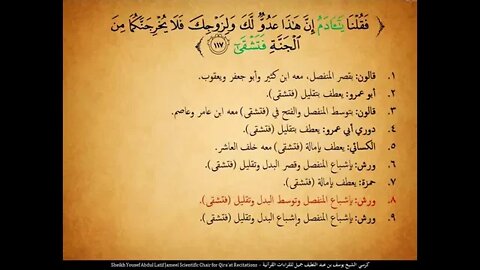 فَقُلْنَا يَٰٓـَٔادَمُ إِنَّ هَٰذَا عَدُوٌّ لَّكَ وَلِزَوْجِكَ فَلَا يُخْرِجَنَّكُمَا مِنَ
ٱلْجَنَّةِ فَتَشْقَىٰٓ ١١٧
١. قالون: بقصر المنفصل، معه ابن كثير وأبو جعفر ويعقوب.
٢. أبو عمرو: يعطف بتقليل (فتشقى).
٣. قالون: بتوسط المنفصل والفتح في (فتشقى) معه ابن عامر وعاصم.
٤. دوري أبي عمرو: يعطف بتقليل (فتشقى).
٥. الكسائي: يعطف بإمالة (فتشقى) معه خلف العاشر.
٦. ورش: بإشباع المنفصل وقصر البدل وتقليل (فتشقى).
٧. حمزة: يعطف بإمالة (فتشقى).
٨. ورش: بإشباع المنفصل وتوسط البدل وتقليل (فتشقى).
٩. ورش: بإشباع المنفصل وإشباع البدل وتقليل (فتشقى).
Sheikh Yousef Abdul Latif Jameel Scientific Chair for Qira'at Recitations - كرسي الشيخ يوسف بن عبد اللطيف جميل للقراءات القرآنية